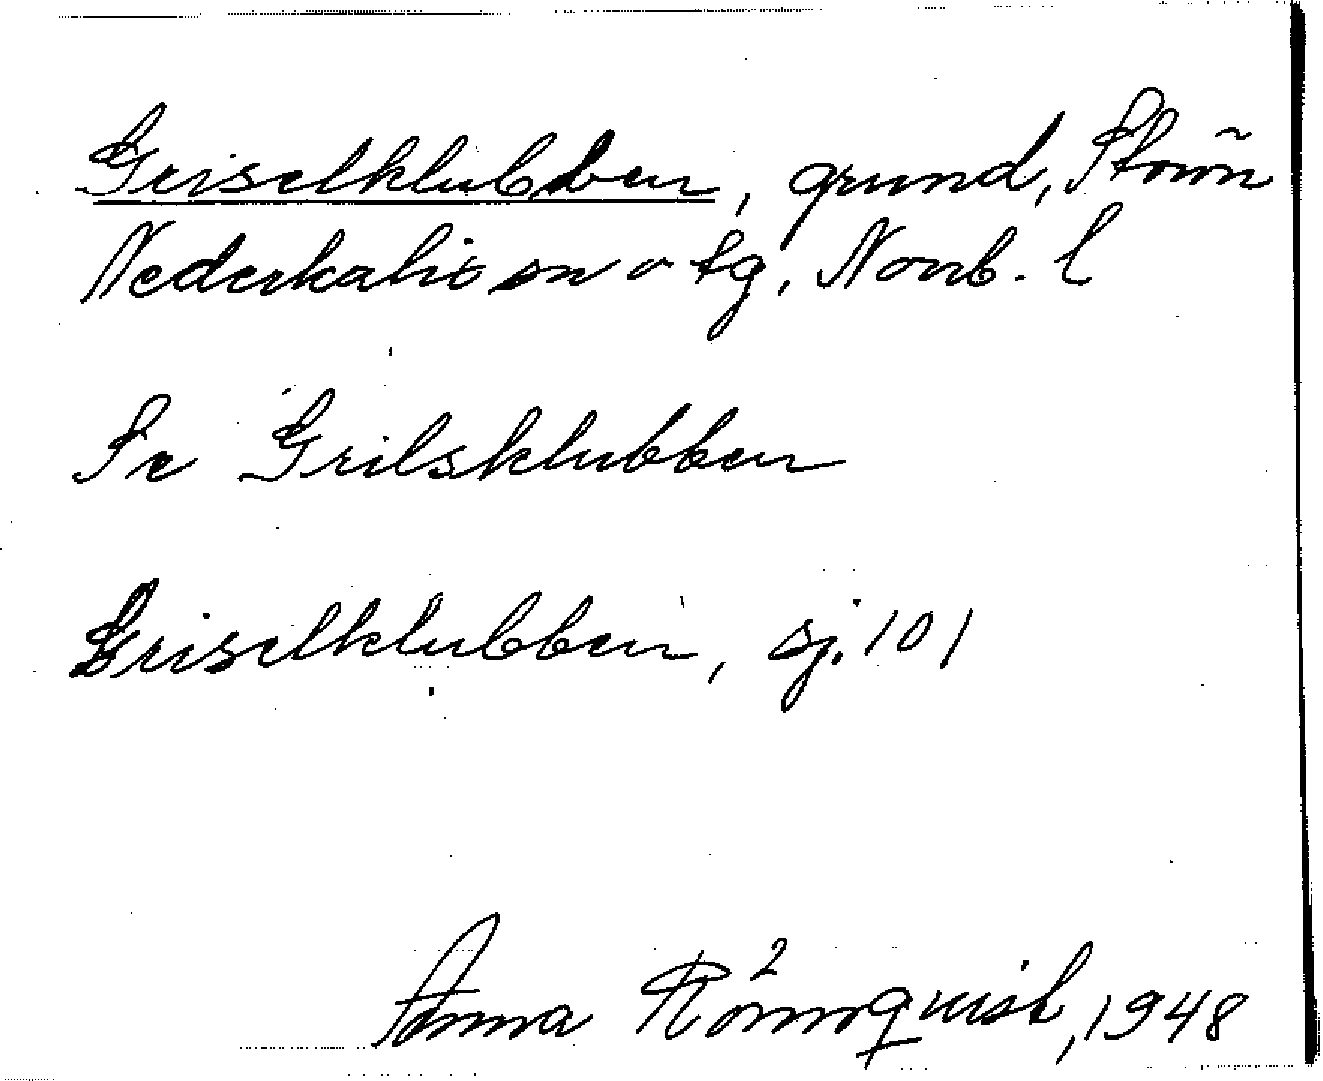 Griselklubben, grund, Storön
Nederkalix sn o tg, Norrb. l
Se Grilsklubben
Griselklubben, sj. 101
Anna Rönnquist, 1948